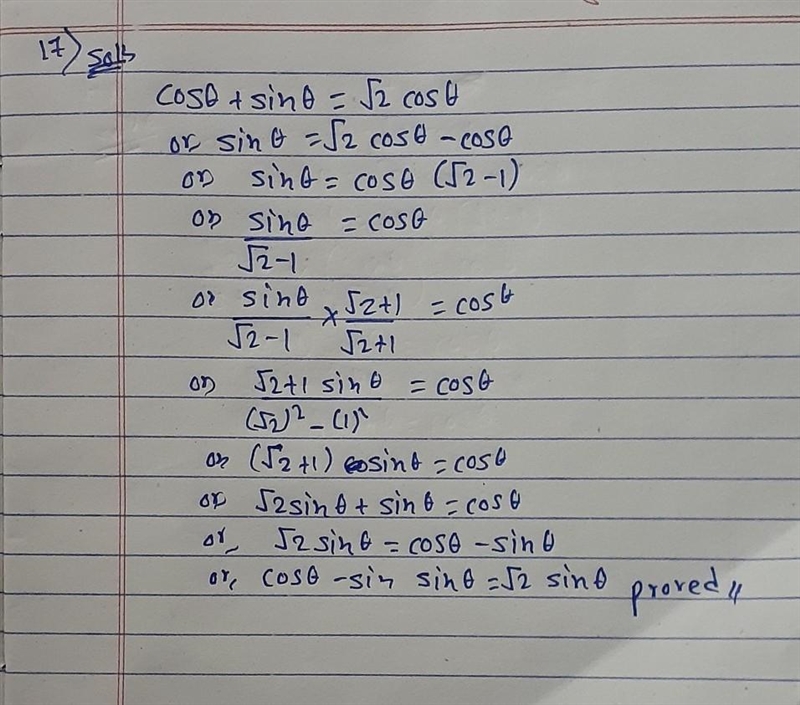 17) Soln
cosθ + sinθ = √2 cosθ
or sinθ = √2 cosθ - cosθ
or sinθ = cosθ (√2-1)
or sinθ/√2-1 = cosθ
or sinθ/√2-1 × √2+1/√2+1 = cosθ
or √2+1 sinθ/(√2)² - (1)² = cosθ
or (√2+1) sinθ = cosθ
or √2sinθ + sinθ = cosθ
or, √2 sinθ = cosθ - sinθ
or, cosθ - sin sinθ = √2 sinθ proved〃